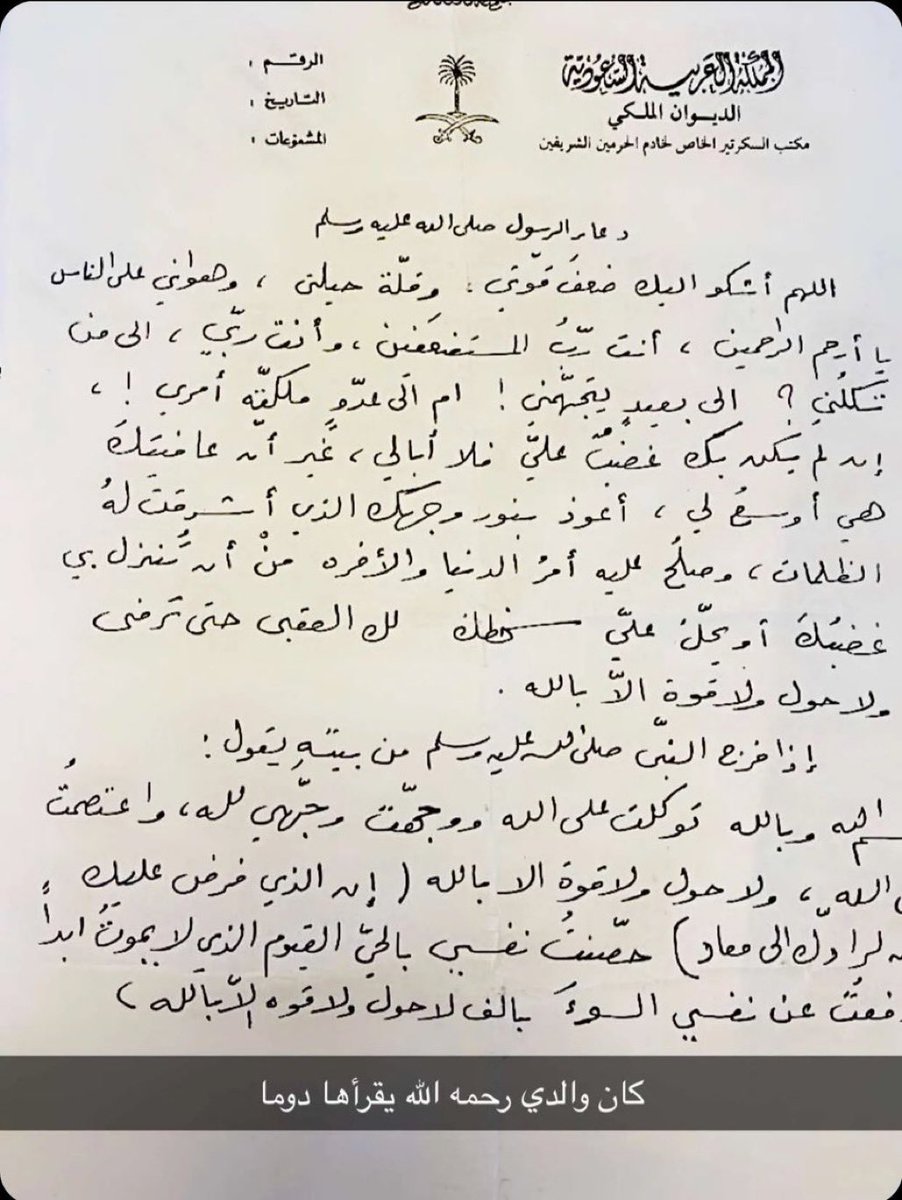 المملكة العربية السعودية
الديوان الملكي
مكتب السكرتير الخاص لخادم الحرمين الشريفين
الرقم :
التاريخ :
المشفوعات :
دعاء الرسول صلى الله عليه وسلم
اللهم أشكو اليك ضعفَ قوّتي ، وقلّة حيلتي ، وهواني على الناس
يا أرحم الراحمين ، أنت ربُّ المستضعَفين ، وأنت ربّي ، الى من
تَكلُني ؟ الى بعيدٍ يتجهّمني ! ام الى عدّوٍ ملكتّه أمري ! ،
إن لم يكن بك غضبٌ عليّ فلا أبالي ، غير أن عافيتكَ
هي أوسعُ لي ، أعوذ بنور وجهك الذي أشرقت لهُ
الظلمات ، وصلُح عليه أمرُ الدنيا والأخره منْ أن تُنزل بي
غضبُكَ أو يحلّ عليّ سخطك لك العقبى حتى ترضى
ولا حول ولا قوة الاّ بالله .
إذا خرج النبيّ صلى الله عليه وسلم من بيتهِ يقول :
الله وبالله توكلت على الله ووجّهت وجّهي لله ، واعتصمتُ
الله ، ولا حول ولا قوة الا بالله ( إن الذي فرض عليك
لرادّك الى معاد ) حصّنتُ نفسي بالحيّ القيوم الذي لا يموتُ ابداً
عن نفسي السوءَ بالف لا حول ولا قوه الاّ بالله ،
كان والدي رحمه الله يقرأها دوما